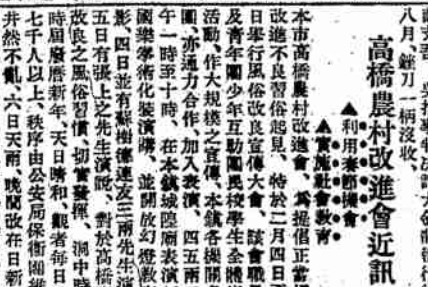 八月、銼刀一柄沒收、
高橋農村改進會近訊
▲利用春節機會
▲實施社會教育
本市高橋農村改進會、爲提倡正當娛
改進不良習俗起見、特於二月四日
日舉行風俗改良宣傳大會、該會職員
及青年團少年互助團民校學生全體
活動、作大規模之宣傳、本鎭各機關
團、亦通力合作、加入表演、四五兩
午一時至十時、在本鎭城隍廟表演
國樂拳術化裝演講、並開放幻燈
影、四日並有蘇樹德連友三兩先生演
五日有張上之先生演說、對於高橋
改良之風俗習慣、切實發揮、洞中時
時屆廢曆新年、天日晴和、觀者每日
七千人以上、秩序由公安局保衛團維
井然不亂、六日天雨、晚間改在日新